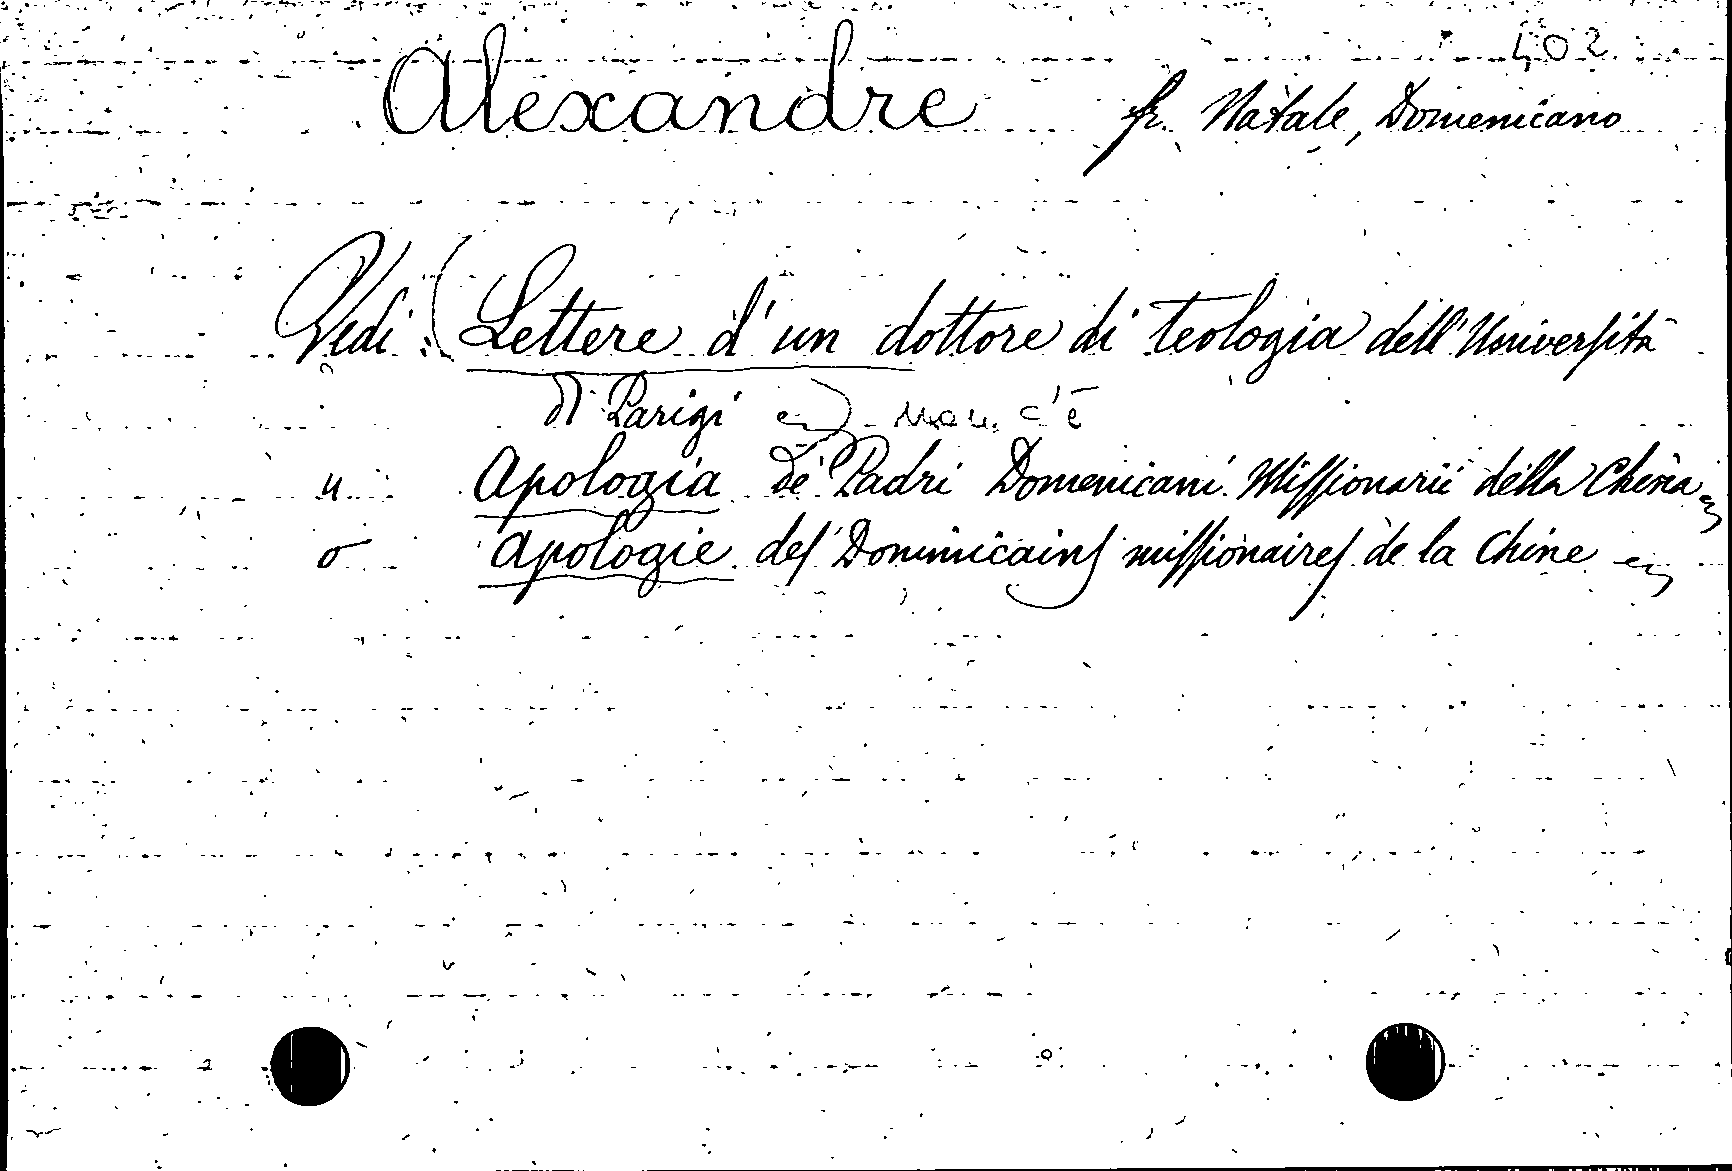 402
Alexandre fr. Natale, Domenicano
Vedi: (Lettere d'un dottore di teologia dell'Università
di Parigi ) non c'è
" Apologia de' Padri Domenicani Missionarii della China
o Apologie des Dominicains missionaires de la Chine